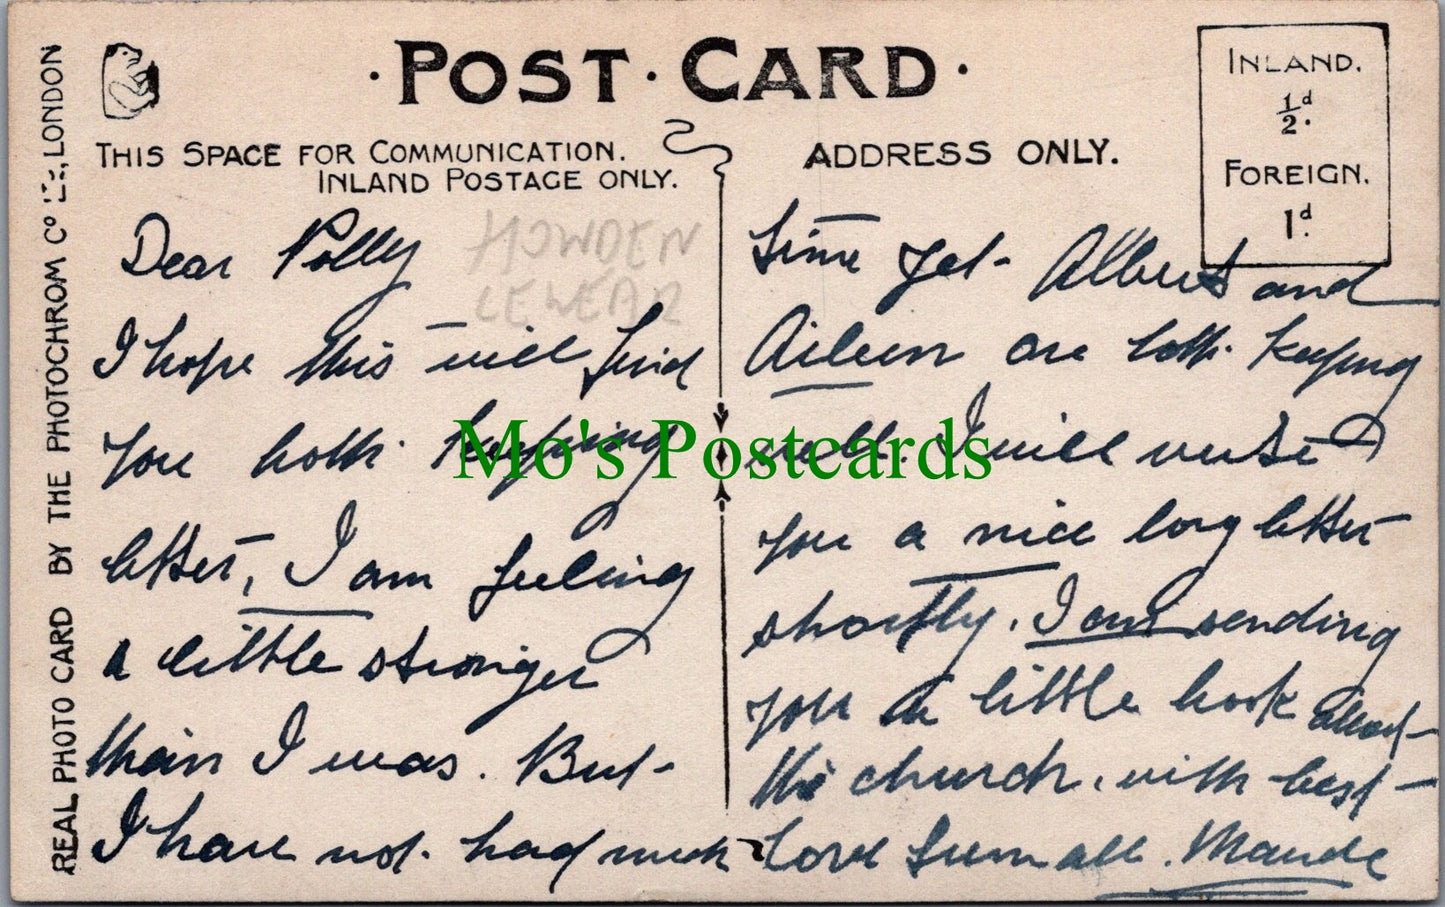 POST CARD
THIS SPACE FOR COMMUNICATION.
INLAND POSTAGE ONLY.
ADDRESS ONLY.
INLAND.
½d.
FOREIGN.
1d.
REAL PHOTO CARD BY THE PHOTOCHROM Co LTD, LONDON
HOWDEN
Dear Polly
I hope this will find
you both keeping
better, I am feeling
a little stronger
than I was. But
I have not had much
time yet Albert and
Aileen are both keeping
well. I will write
you a nice long letter
shortly. I am sending
you a little book about
the church, with best
Love from all. Maude
Mo's Postcards